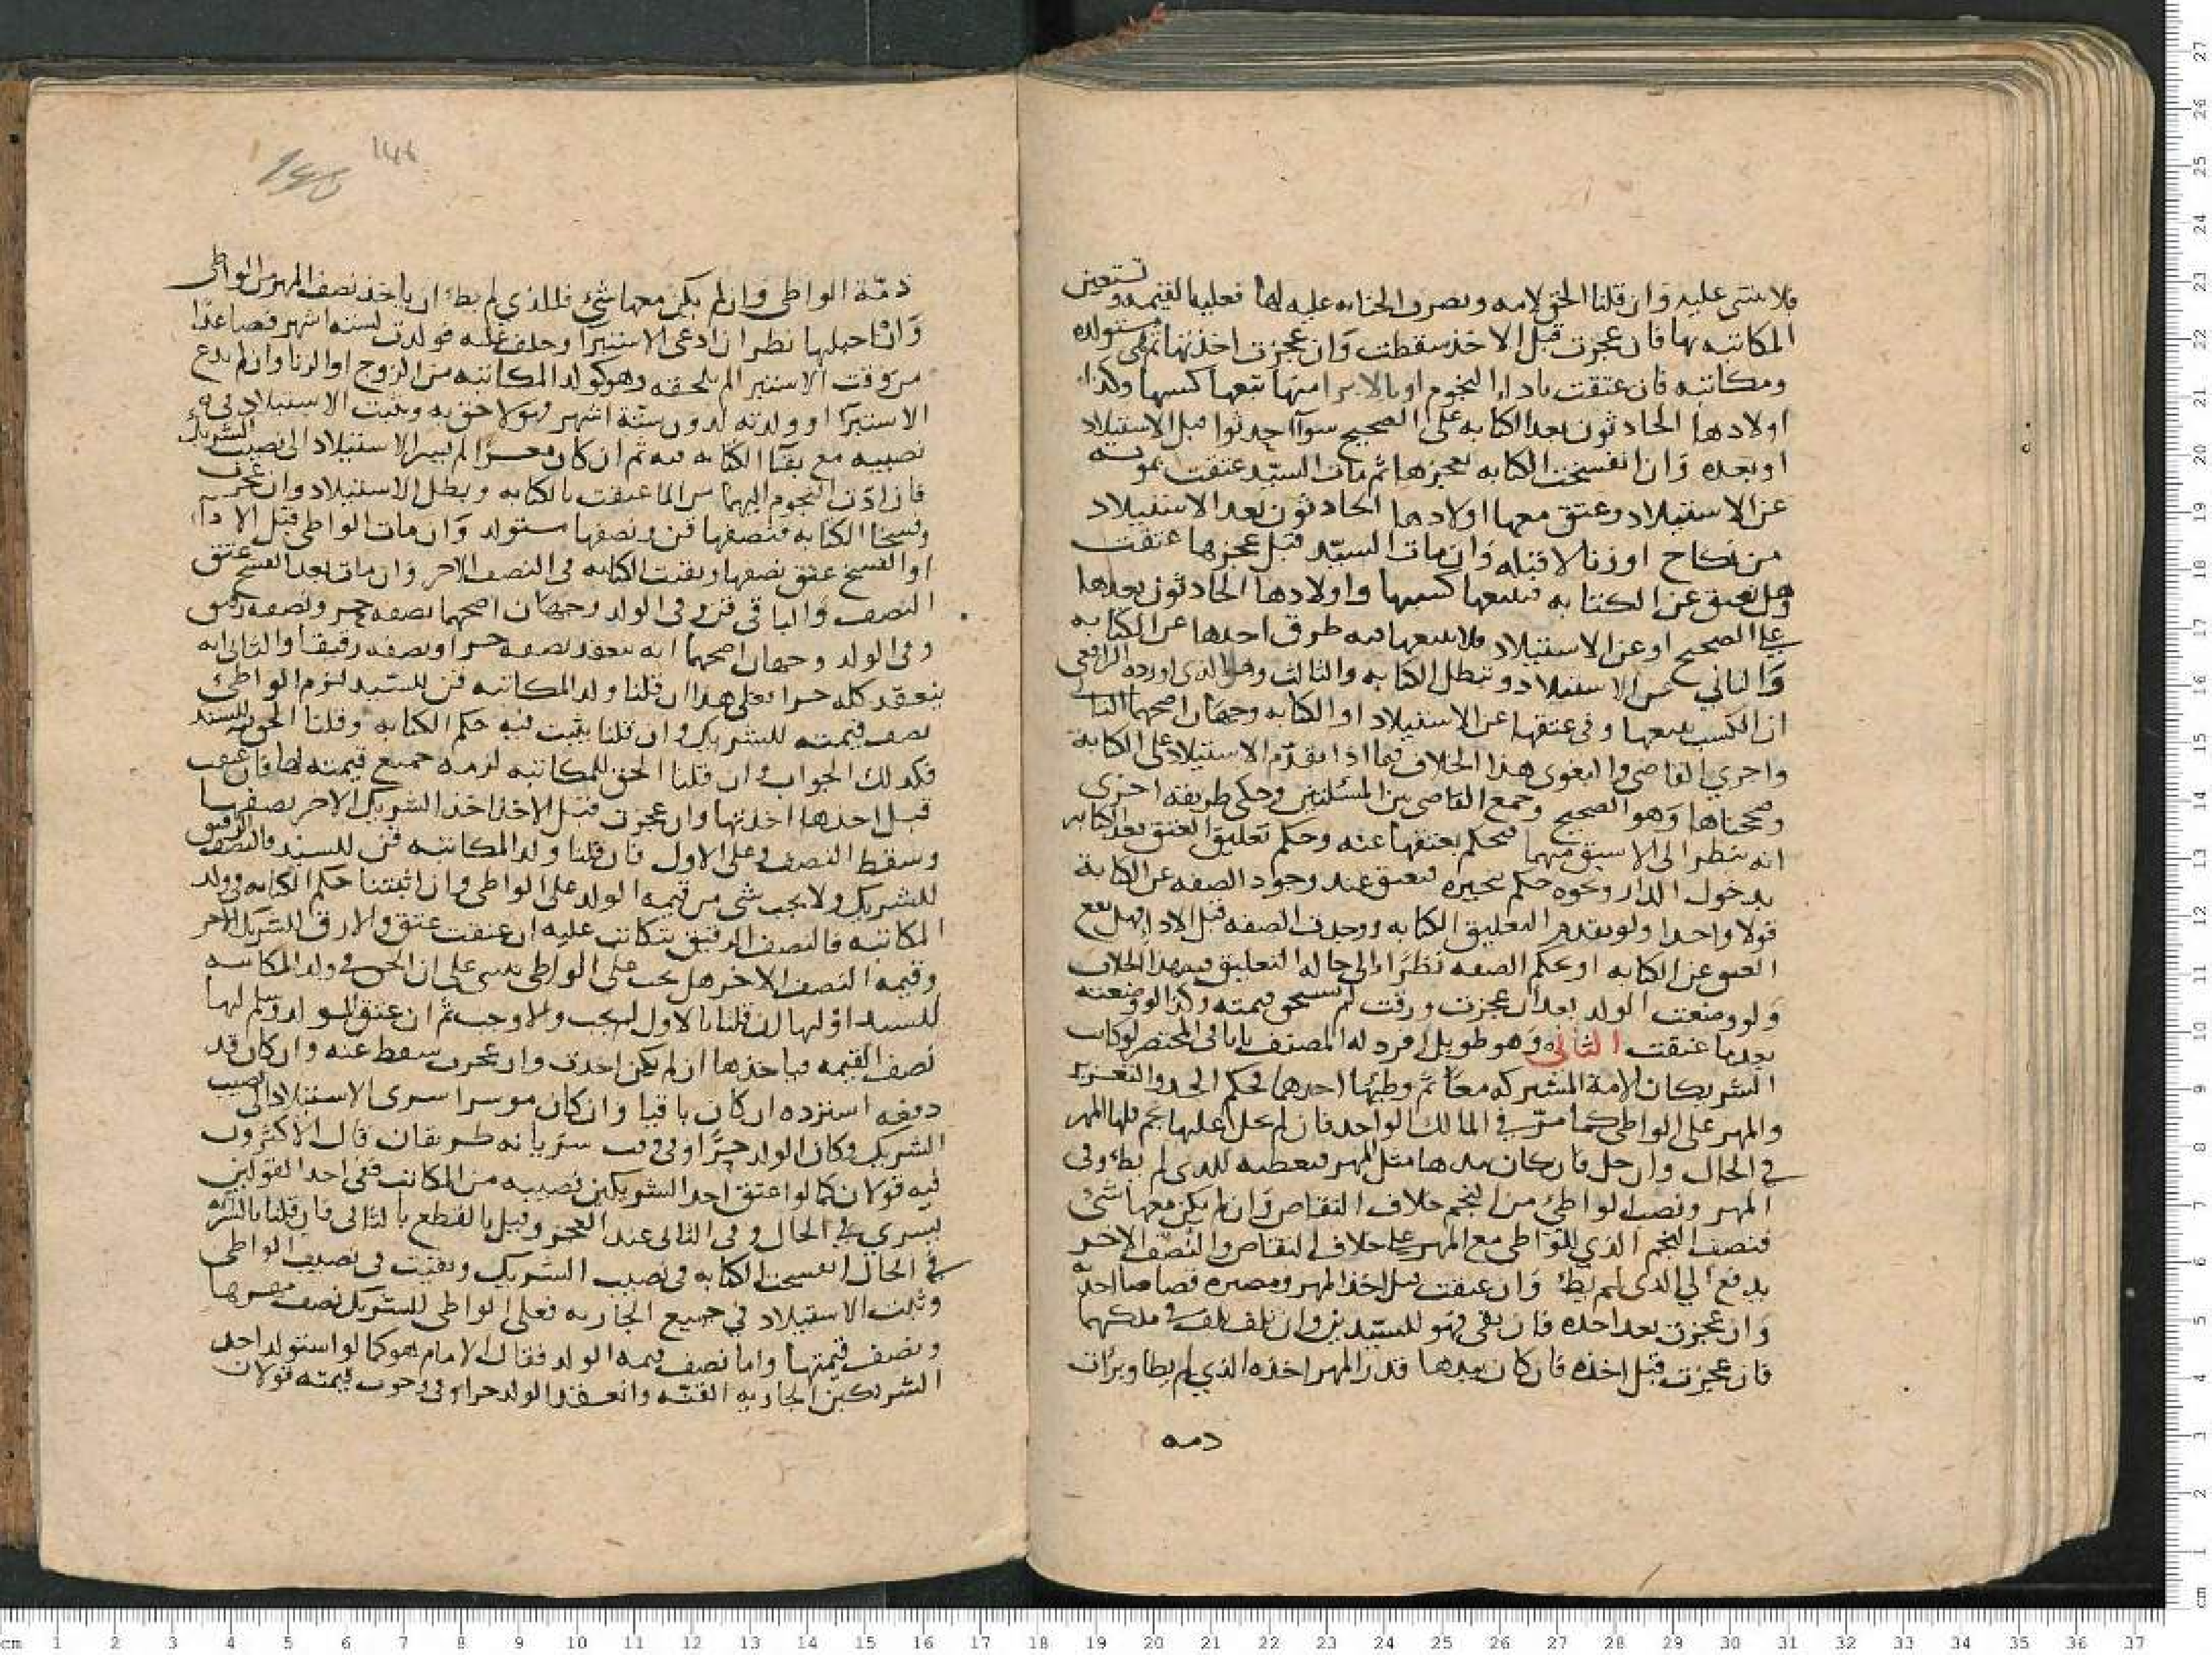 فلا شي عليه وان قلنا الحق لامه ويصرف الجنايه عليه لها فعليه القيمه وتستعين
المكاتبه بها فان عجزت قبل الاخذ سقطت وان عجزت اخذتها ثم هي مستولده
ومكاتبه فان عتقت باداء النجوم او بالابرا منها تبعها كسبها وكذا
اولادها الحادثون بعد الكتابه على الصحيح سوآ احدثوا قبل الاستيلاد
او بعده وان انفسخت الكتابه بعجزها ثم مات السيد عتقت بموته
عن الاستيلاد وعتق معها اولادها الحادثون بعد الاستيلاد
من نكاح او زنا لا قبله وان مات السيد قبل عجزها عتقت
وهل تعتق عن الكتابه فيتبعها كسبها واولادها الحادثون بعدها
على الصحيح او عن الاستيلاد فلا يتبعها فيه طرق احدها عن الكتابه
والثاني عن الاستيلاد وتبطل الكتابه والثالث وهو الذي اورده الرافعي
ان الكسب يتبعها وفي عتقها عن الاستيلاد او الكتابه وجهان اصحهما الثاني
واجري القاضي والبغوي هذا الخلاف فيما اذا تقدم الاستيلاد على الكتابة
وصححناها وهو الصحيح وجمع القاضي بين المسئلتين وحكى طريقة اخرى
انه ينظر الى الاسبق منهما فيحكم بعتقها عنه وحكم تعليق العتق بعد الكتابه
بدخول الدار ونحوه حكم تنجيزه فيعتق عند وجود الصفه عن الكتابة
قولا واحدا ولو تقدم التعليق الكتابه ووجدت الصفه قبل الادا فهل يقع
العتق عن الكتابه او بحكم الصفه نظرا الى حاله التعليق فيه هذا الخلاف
ولو وضعت الولد بعد ان عجزت ورقت لم تستحق قيمته وكذا لو وضعته
بعدما عتقت الثاني وهو طويل افرد له المصنف بابا في المختصر لو كاتب
الشريكان الامة المشتركه معا ثم وطئها احدهما فحكم الحد والتعزير
والمهر على الواطي كما مر في المالك الواحد فان لم يحل عليها نجم فلها المهر
في الحال وان حل فان كان بيدها مثل المهر فيعطيه للذي لم يطا وفي
المهر ونصيب الواطئ من النجم خلاف التقاص وان لم يكن معها شئ
فنصف النجم الذي للواطي مع المهر على خلاف التقاص والنصف الاخر
يدفع الي الذي لم يطا وان عتقت قبل اخذ المهر ومصيره قصاصا اخذته
وان عجزت بعد اخذه فان بقي فهو للسيدين وان تلف تلف في ملكهما
فان عجزت قبل اخذه فان كان بيدها قدر المهر اخذه الذي لم يطا وبرات
دمه
146
ذمة الواطي وان لم يكن معها شئ فللذي لم يطا ان ياخذ نصف المهر من الواطي
وان احبلها نظر ان ادعى الاستبرا وحلف عليه فولدت لستة اشهر فصاعدا
من وقت الاستبرا لم يلحقه وهو كولد المكاتبه من الزوج او الزنا وان لم يدع
الاستبرا او ولدته لدون ستة اشهر فهو لاحق به ويثبت الاستيلاد في
نصيبه مع بقا الكتابه فيه ثم ان كان معسرا لم يسر الاستيلاد الى نصيب الشريك
فان ادت النجوم اليهما عتقت بالكتابه وبطل الاستيلاد وان عجزت
وفسخا الكتابه فنصفها قن ونصفها مستولد وان مات الواطي قبل الادآ
او الفسخ عتق نصفها وبقيت الكتابه في النصف الاخر وان مات بعد الفسخ عتق
النصف والباقي قن وفي الولد وجهان اصحهما نصفه حر ونصفه رقيق
وفي الولد وجهان اصحهما انه ينعقد نصفه حرا ونصفه رقيقا والثاني انه
ينعقد كله حرا فعلى هذا ان قلنا ولد المكاتبه قن للسيد لزم الواطئ
نصف قيمته للشريك وان قلنا يثبت فيه حكم الكتابه وقلنا الحق للسيد
فكذلك الجواب وان قلنا الحق للمكاتبه لزمه جميع قيمته لها فان عتقت
قبل اخذها اخذتها وان عجزت قبل الاخذ اخذ الشريك الاخر نصفها
وسقط النصف وعلى الاول فان قلنا ولد المكاتبه قن للسيد فالنصف الرقيق
للشريك ولا يجب شي من قيمه الولد على الواطي وان اثبتنا حكم الكتابه في ولد
المكاتبه فالنصف الرقيق يتكاتب عليه ان عتقت عتق والا رق للشريك الاخر
وقيمه النصف الاخر هل يجب على الواطي يبنى على ان الحق في ولد المكاتبه
للسيد او لها ان قلنا بالاول لم يجب والا وجب ثم ان عتق
نصف القيمه فياخذها ان لم يكن اخذت وان عجزت سقط عنه وان كان قد
دفعه استرده ان كان باقيا وان كان موسرا سرى الاستيلاد الى نصيب
الشريك وكان الولد حرا وفي وقت سريانه طريقان قال الاكثرون
فيه قولان كما لو اعتق احد الشريكين نصيبه من المكاتب ففي احد القولين
يسري في الحال وفي الثاني عند العجز وقيل بالقطع بالثاني فان قلنا بالسرايه
في الحال انفسخت الكتابه في نصيب الشريك وبقيت في نصيب الواطي
وثبت الاستيلاد في جميع الجاريه فعلى الواطي للشريك نصف مهرها
ونصف قيمتها واما نصف قيمه الولد فقال الامام هو كما لو استولد احد
الشريكين الجاريه القنه وانعقد الولد حرا وفي وجوب قيمته قولان